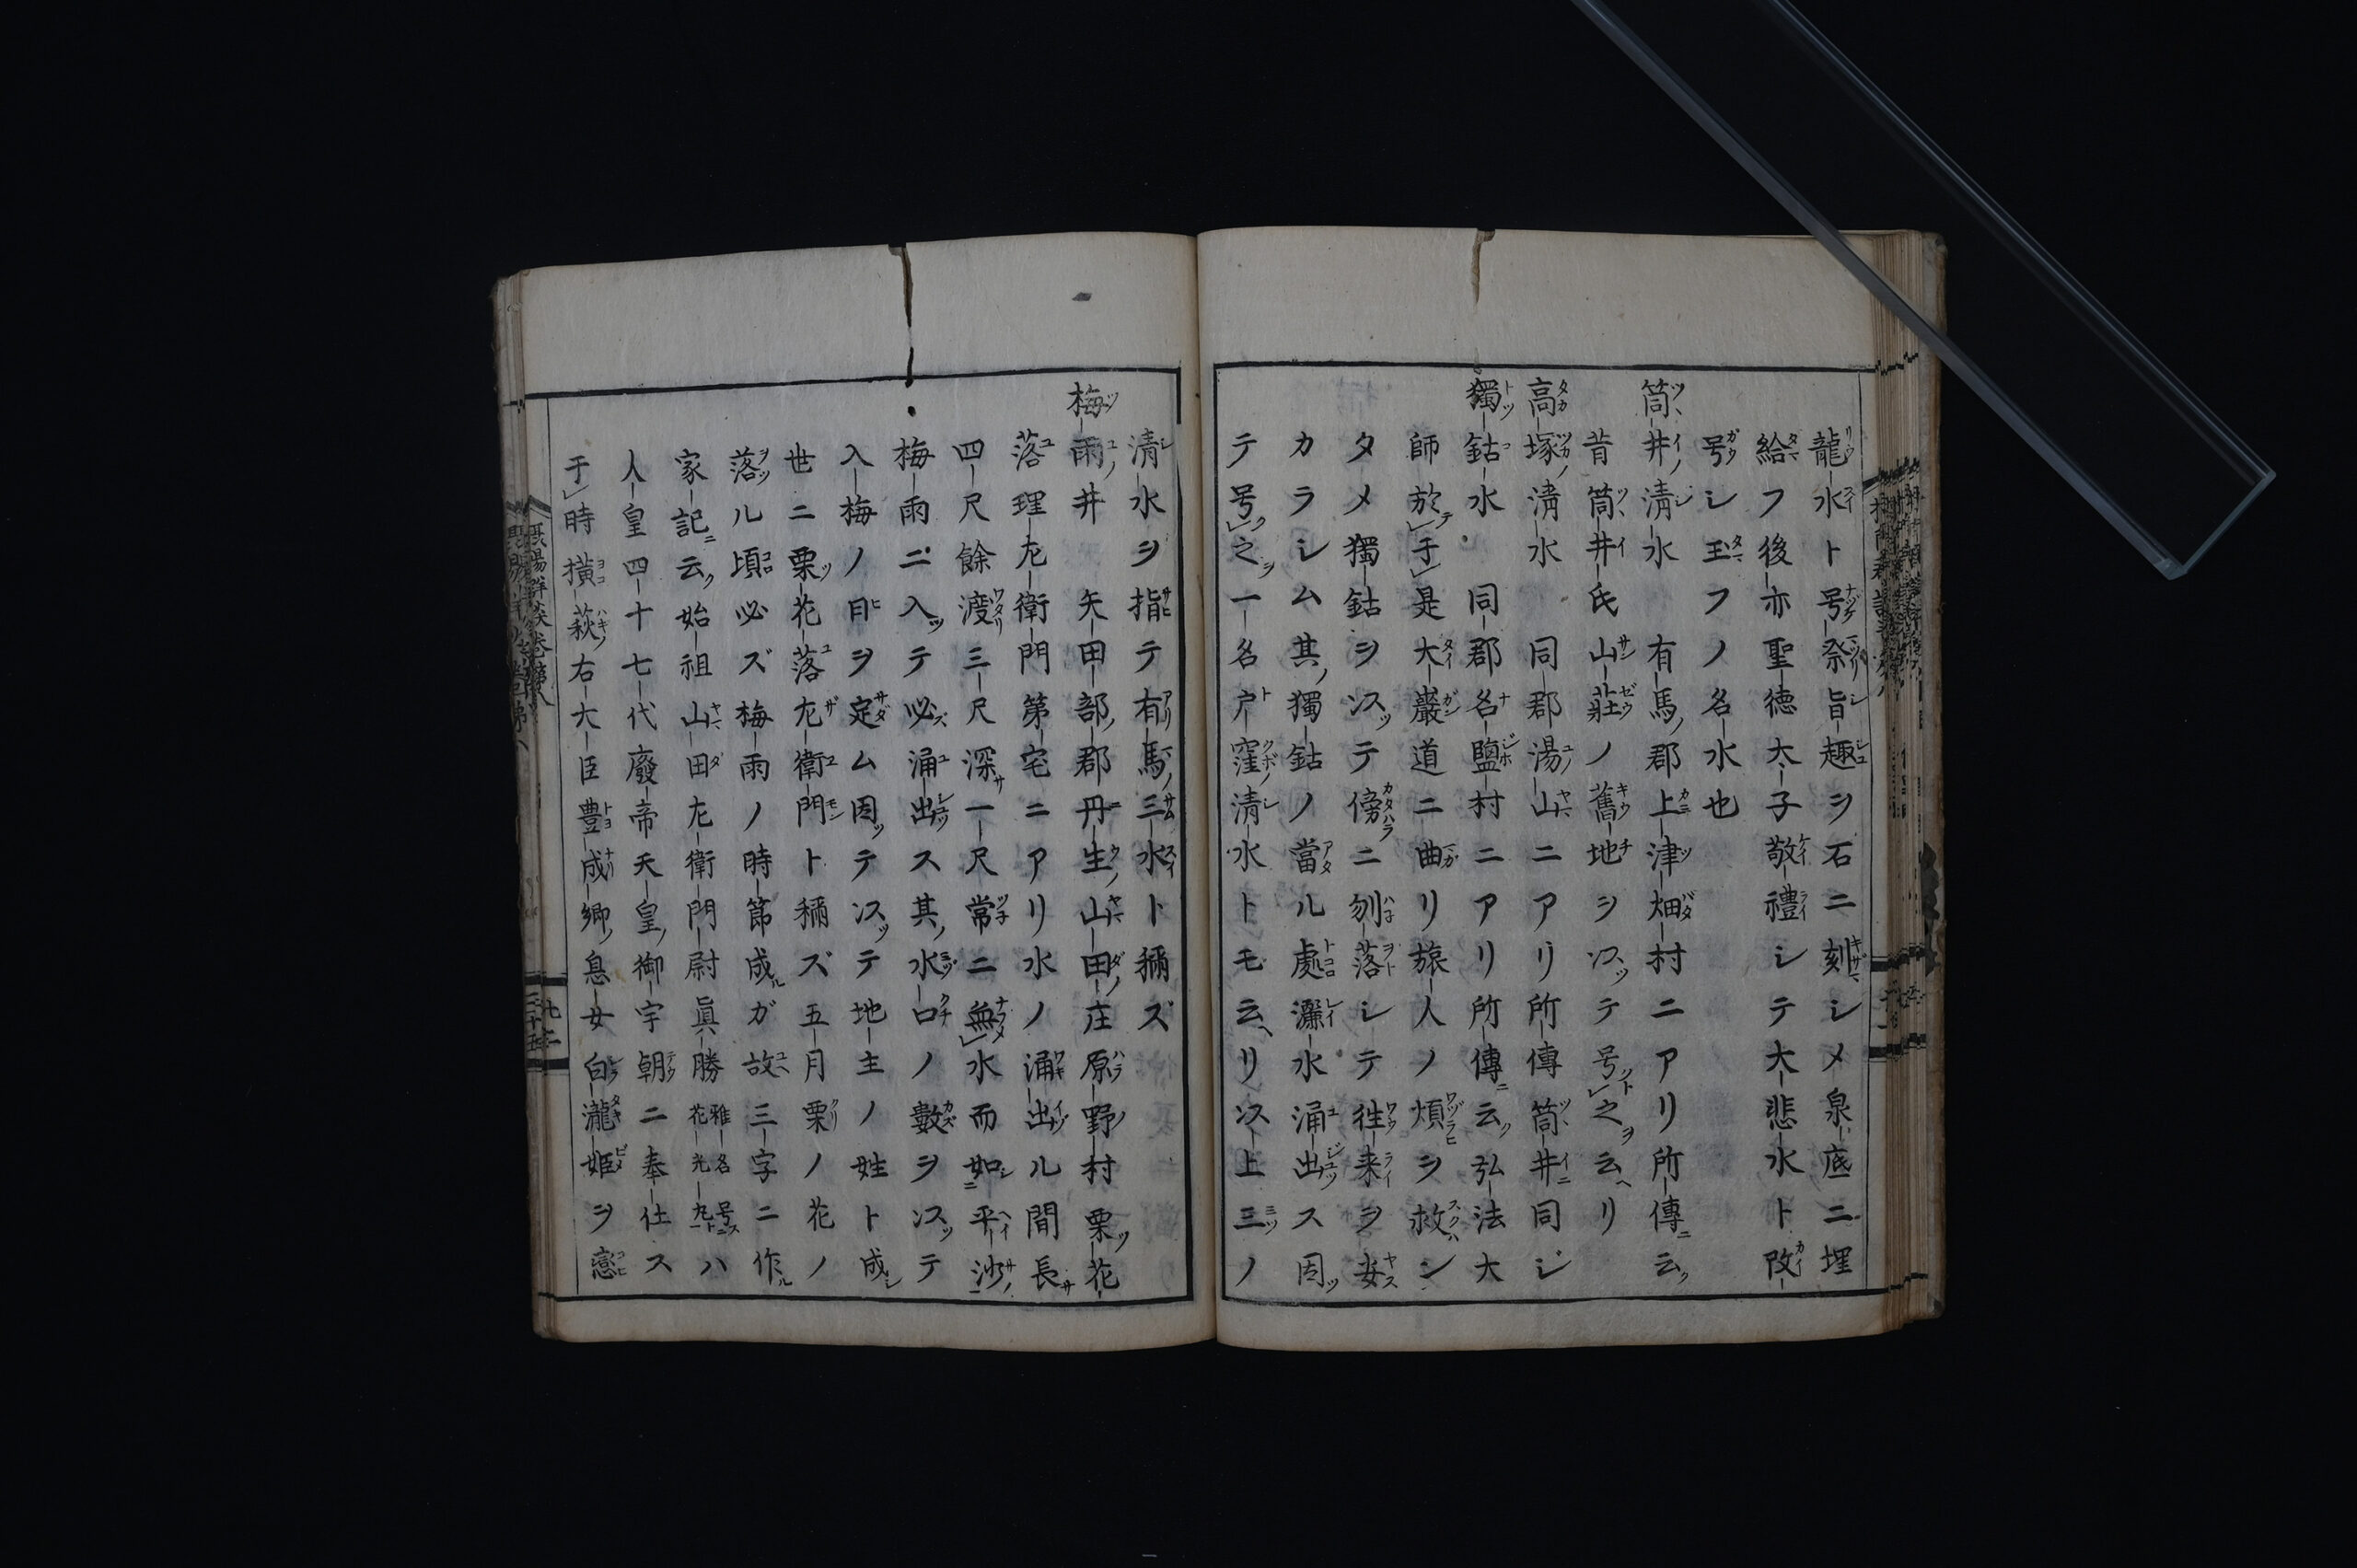 龍水ト号祭旨趣ヲ石ニ刻シメ泉底ニ埋
給フ後亦聖徳太子敬禮シテ大悲水ト改
号シ玉フノ名水也
筒井清水 有馬郡上津畑村ニアリ所傳云
昔筒井氏山莊ノ舊地ヲ以テ号之云リ
高塚清水 同郡湯山ニアリ所傳筒井同シ
獨鈷水 同郡名鹽村ニアリ所傳云弘法大
師於于是大巖道ニ曲リ旅人ノ煩ヲ救ン
タメ獨鈷ヲ以テ傍ニ刎落シテ徃来ヲ安
カラシム其獨鈷ノ當ル處灑水涌出ス因
テ号之一名戸窪清水トモ云リ以上三ノ
清水ヲ指テ有馬三水ト稱ズ
梅雨井 矢田部郡丹生山田庄原野村栗花
落理左衛門第宅ニアリ水ノ涌出ル間長
四尺餘渡三尺深一尺常ニ無水而如平沙
梅雨ニ入テ必涌出ス其水口ノ數ヲ以テ
入梅ノ日ヲ定ム因テ以テ地主ノ姓ト成
世ニ栗花落左衛門ト稱ズ五月栗ノ花ノ
落ル頃必ズ梅雨ノ時節成ガ故三字ニ作
家記云始祖山田左衛門尉眞勝雅名号花光丸ハ
人皇四十七代廢帝天皇御宇朝ニ奉仕ス
于時横萩右大臣豊成卿息女白瀧姫ヲ戀
摂陽群談巻第八
九ノ二十五